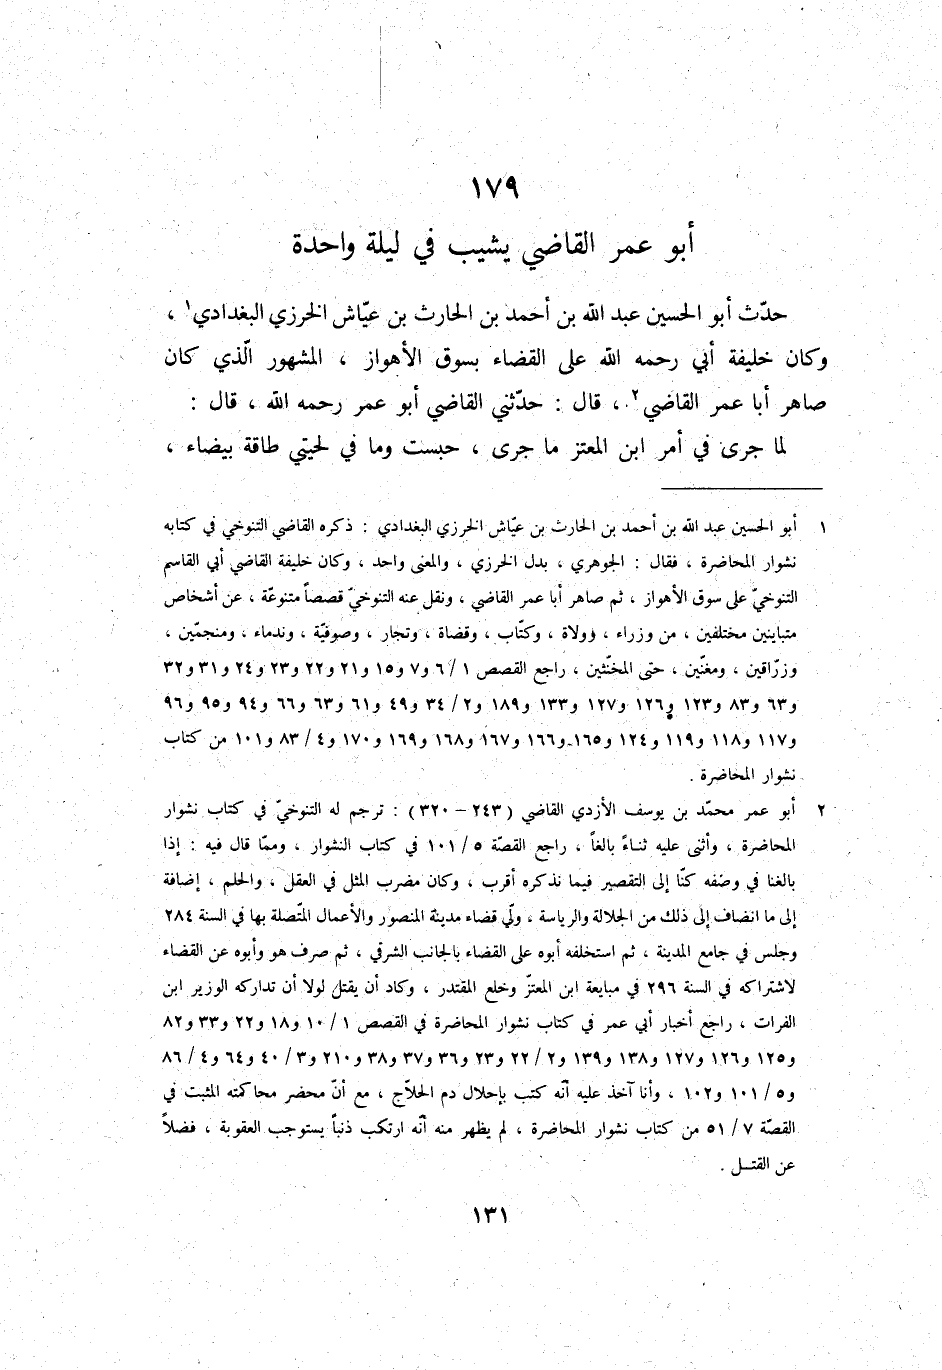 ١٧٩
أبو عمر القاضي يشيب في ليلة واحدة
حدّث أبو الحسين عبد الله بن أحمد بن الحارث بن عيّاش الخرزي البغدادي١ ،
وكان خليفة أبي رحمه الله على القضاء بسوق الأهواز ، المشهور الّذي كان
صاهر أبا عمر القاضي٢ ، قال : حدّثني القاضي أبو عمر رحمه الله ، قال :
لما جرى في أمر ابن المعتز ما جرى ، حبست وما في لحيتي طاقة بيضاء ،
١ أبو الحسين عبد الله بن أحمد بن الحارث بن عيّاش الخرزي البغدادي : ذكره القاضي التنوخي في كتابه
نشوار المحاضرة ، فقال : الجوهري ، بدل الخرزي ، والمعنى واحد ، وكان خليفة القاضي أبي القاسم
التنوخيّ على سوق الأهواز ، ثم صاهر أبا عمر القاضي ، ونقل عنه التنوخيّ قصصاً متنوعّة ، عن أشخاص
متباينين مختلفين ، من وزراء ، وولاة ، وكتّاب ، وقضاة ، وتجار ، وصوفيّة ، وندماء ، ومنجمّين ،
وزرّاقين ، ومغنّين ، حتى المخنّثين ، راجع القصص ١ / ٦ و٧ و١٥ و٢١ و٢٢ و٢٣ و٢٤ و٣١ و٣٢
و٦٣ و٨٣ و١٢٣ و١٢٦ و١٢٧ و١٣٣ و١٨٩ و٢ / ٣٤ و٤٩ و٦١ و٦٣ و٦٦ و٩٤ و٩٥ و٩٦
و١١٧ و١١٨ و١١٩ و١٢٤ و١٦٥ و١٦٦ و١٦٧ و١٦٨ و١٦٩ و١٧٠ و٤ / ٨٣ و١٠١ من كتاب
نشوار المحاضرة .
٢ أبو عمر محمّد بن يوسف الأزدي القاضي (٢٤٣ – ٣٢٠) : ترجم له التنوخيّ في كتاب نشوار
المحاضرة ، وأثنى عليه ثناءً بالغاً ، راجع القصّة ٥ / ١٠١ في كتاب النشوار ، وممّا قال فيه : إذا
بالغنا في وصفه كنّا إلى التقصير فيما نذكره أقرب ، وكان مضرب المثل في العقل ، والحلم ، إضافة
إلى ما انضاف إلى ذلك من الجلالة والرياسة ، ولّي قضاء مدينة المنصور والأعمال المتّصلة بها في السنة ٢٨٤
وجلس في جامع المدينة ، ثم استخلفه أبوه على القضاء بالجانب الشرقي ، ثم صرف هو وأبوه عن القضاء
لاشتراكه في السنة ٢٩٦ في مبايعة ابن المعتزّ وخلع المقتدر ، وكاد أن يقتل لولا أن تداركه الوزير ابن
الفرات ، راجع أخبار أبي عمر في كتاب نشوار المحاضرة في القصص ١ / ١٠ و١٨ و٢٢ و٣٣ و٨٢
و١٢٥ و١٢٦ و١٢٧ و١٣٨ و١٣٩ و٢ / ٢٢ و٢٣ و٣٦ و٣٧ و٣٨ و٢١٠ و٣ / ٤٠ و٦٤ و٤ / ٨٦
و٥ / ١٠١ و١٠٢ ، وأنا آخذ عليه أنّه كتب بإحلال دم الحلاّج ، مع أنّ محضر محاكمته المثبت في
القصّة ٧ / ٥١ من كتاب نشوار المحاضرة ، لم يظهر منه أنّه ارتكب ذنباً يستوجب العقوبة ، فضلاً
عن القتـل .
١٣١